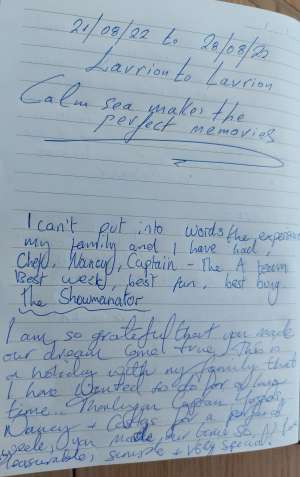 21/08/22 to 28/08/22
Lavrion to Lavrion
Calm sea makes the
perfect memories
I can't put into words the experience
my family and I have had,
Chef, Nancy, Captain - The A team
Best week, best fun, best boys
The Showmanator
I am so grateful that you made
our dream come true. This is
a holiday with my family that
I have wanted to do for a long
time. Thankyou Captain
Nancy + for a perfect
week, you made our time so
pleasurable, + very special.